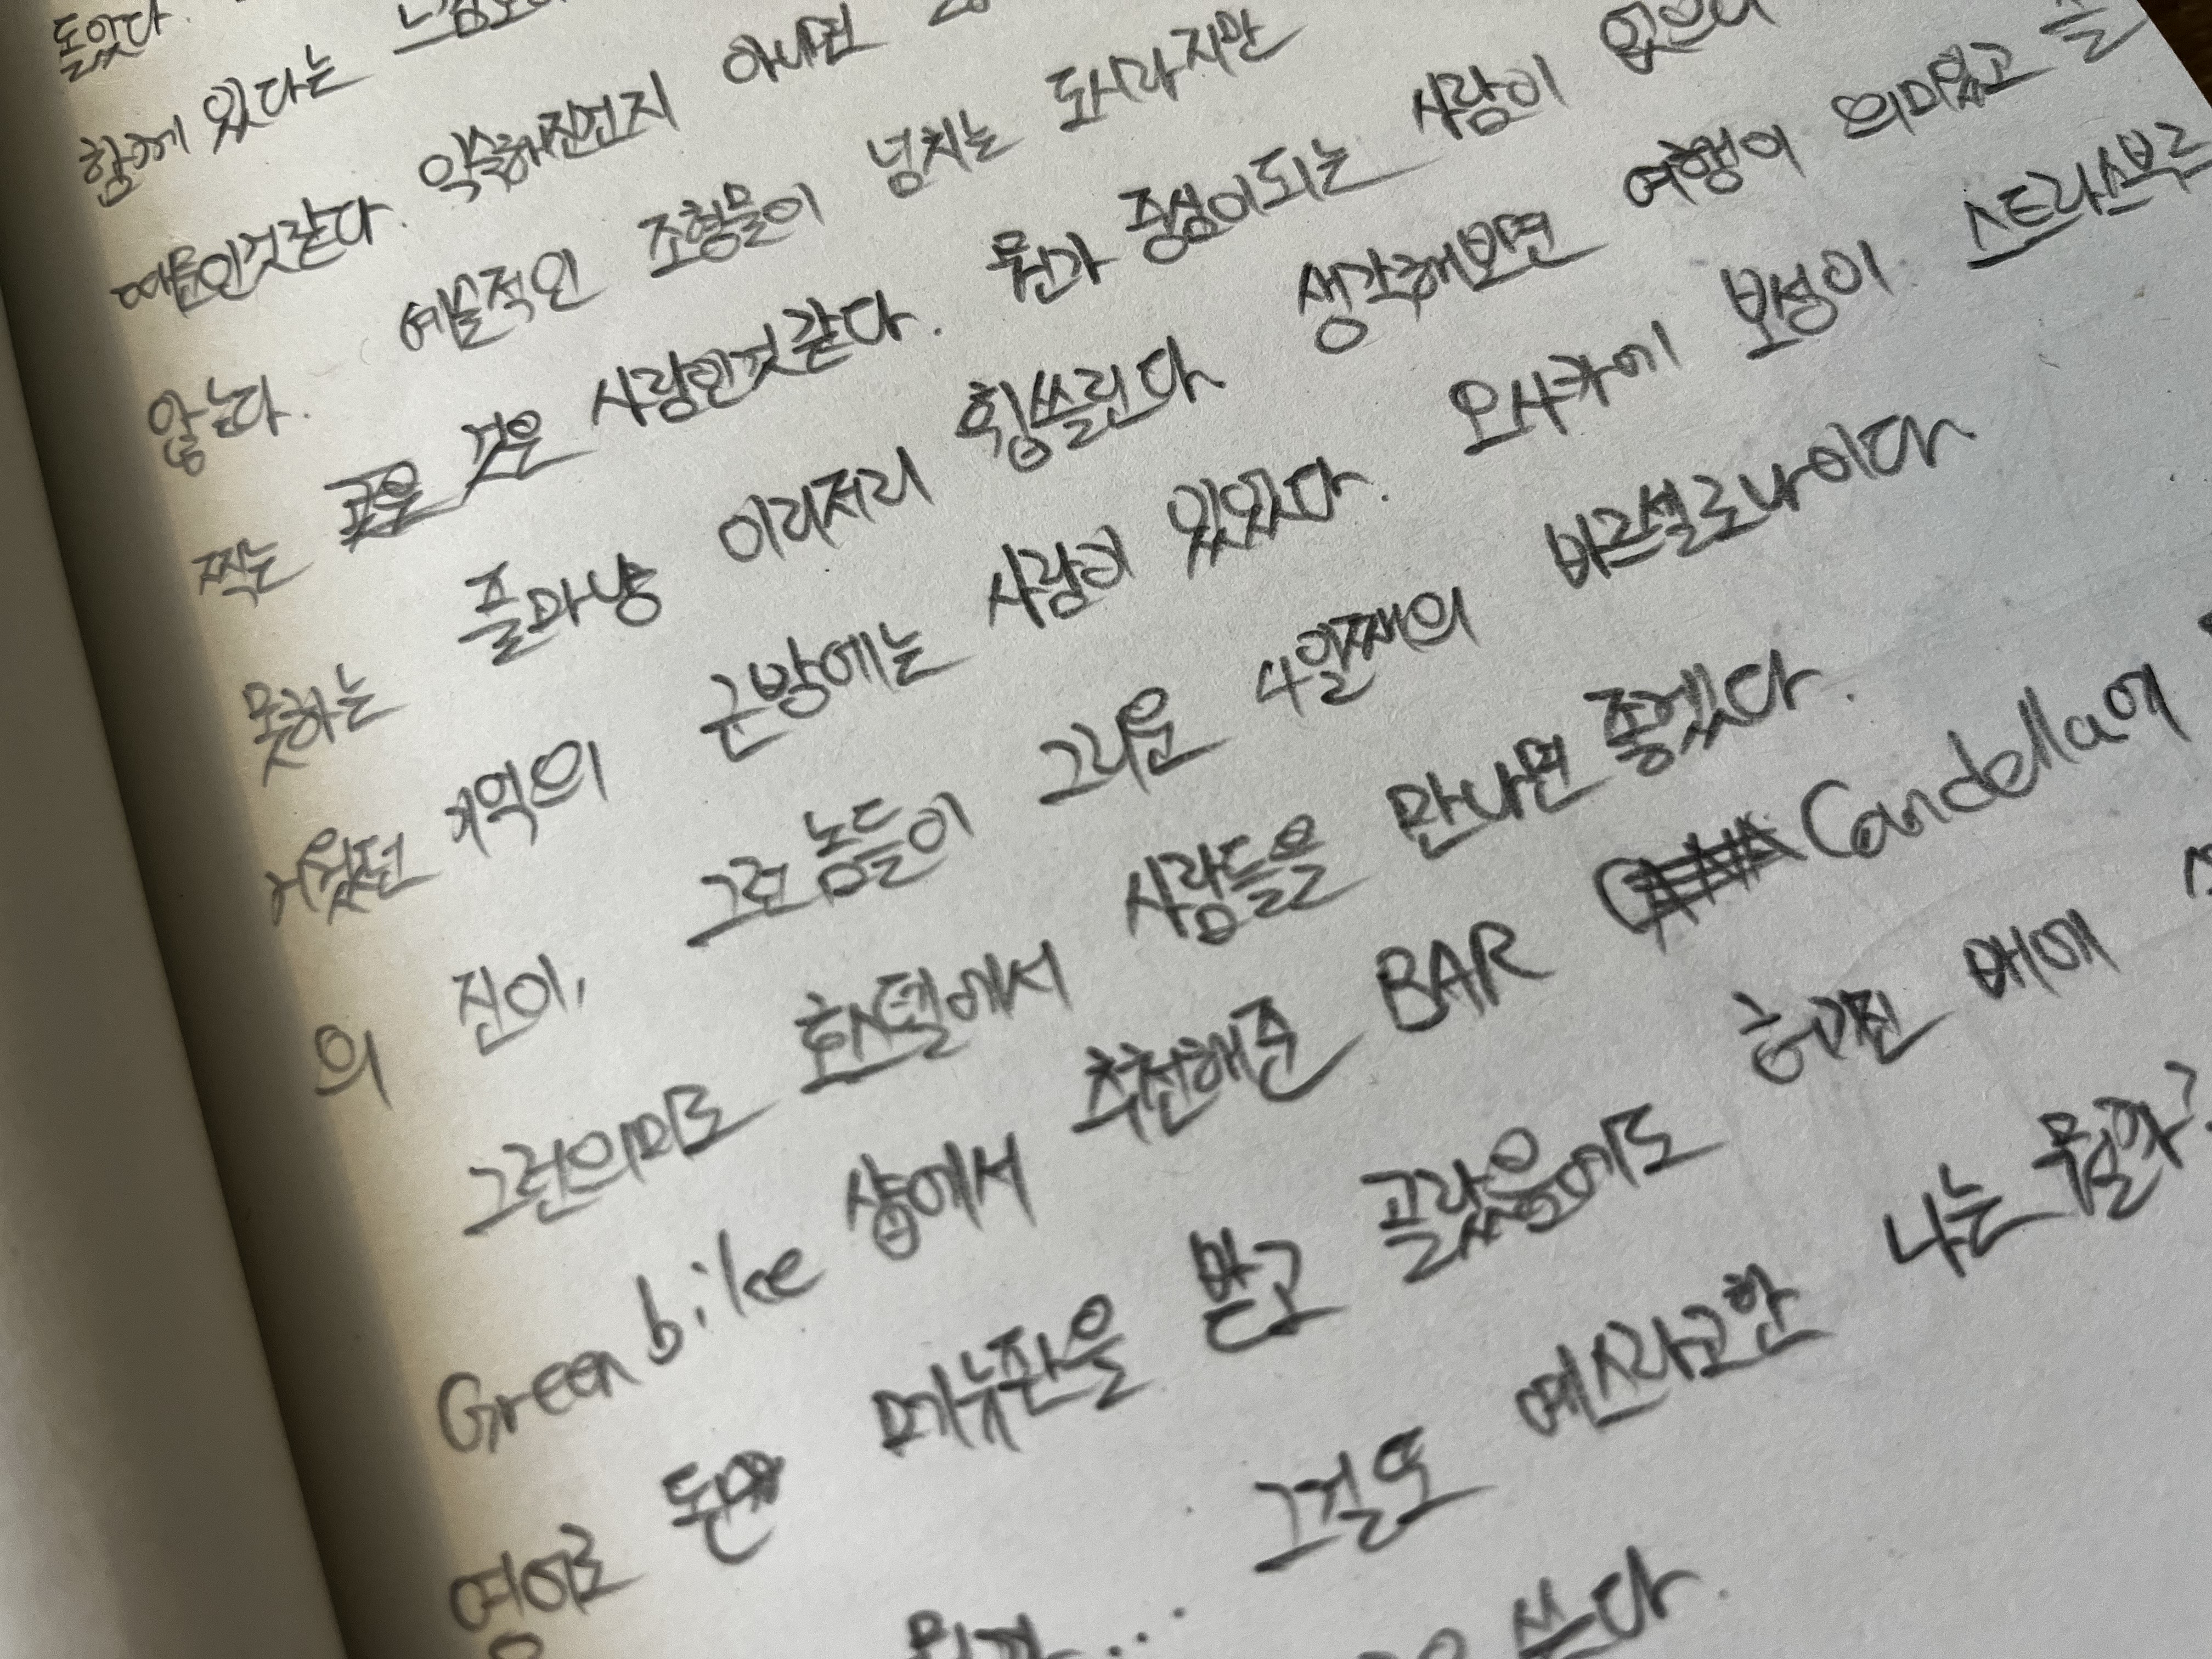 돌았다.
함께 있다는
때문인것같다. 익숙해진건지 아니면
않는다. 예술적인 조형물이 넘치는 도시라지만
찍는 것은 사람인것같다. 뭔가 중심이되는 사람이 없으니
못하는 플마냥 이리저리 휩쓸린다 생각해보면 여행이 의미있고 즐
거웠던 기억의 근방에는 사람이 있었다. 오사카에 보성이 스트라스부르
의 진이, 그런 놈들이 그리운 4일째의 바르셀로나이다
그런의미로 호스텔에서 사람들을 만나면 좋겠다.
Green bike 샵에서 추천해준 BAR Candella에
영어로 된 메뉴판을 받고 골랐음에도 허기진 배에
그걸또 예스라고한 나는 뭘까?
쓰다.